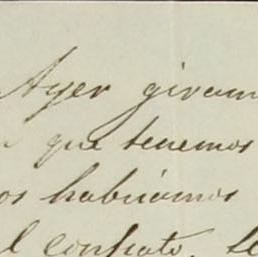 Ayer giram
que tenemos
os habiamos
l contrato, te